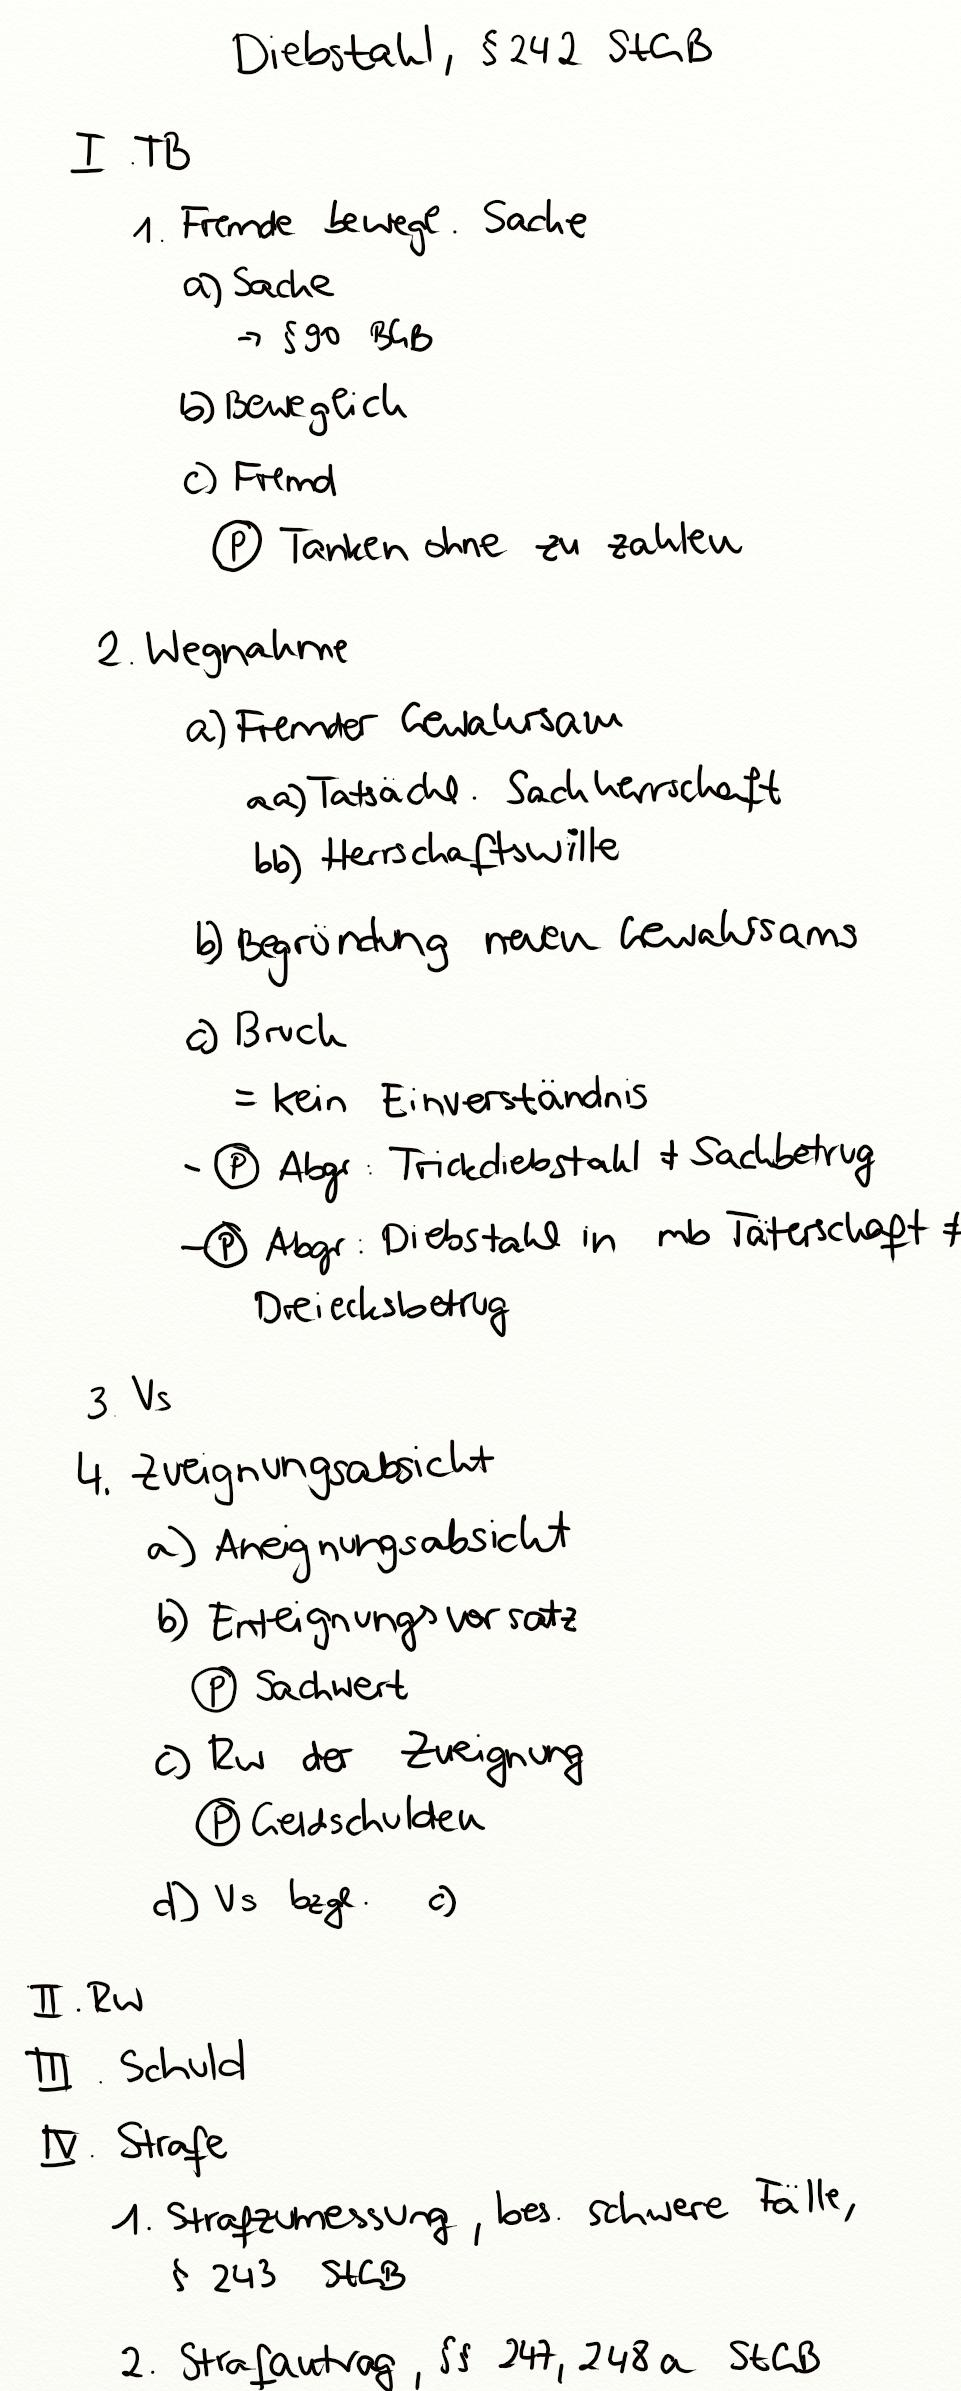 Diebstahl, § 242 StGB
I. TB
1. Fremde bewegl. Sache
a) Sache
→ § 90 BGB
b) Beweglich
c) Fremd
Ⓟ Tanken ohne zu zahlen
2. Wegnahme
a) Fremder Gewahrsam
aa) Tatsächl. Sachherrschaft
bb) Herrschaftswille
b) Begründung neuen Gewahrsams
c) Bruch
= kein Einverständnis
- Ⓟ Abgr: Trickdiebstahl ≠ Sachbetrug
- Ⓟ Abgr: Diebstahl in mb Täterschaft ≠
Dreiecksbetrug
3. Vs
4. Zueignungsabsicht
a) Aneignungsabsicht
b) Enteignungsvorsatz
Ⓟ Sachwert
c) Rw der Zueignung
Ⓟ Geldschulden
d) Vs bzgl. c)
II. Rw
III. Schuld
IV. Strafe
1. Strafzumessung, bes. schwere Fälle,
§ 243 StGB
2. Strafantrag, §§ 247, 248a StGB